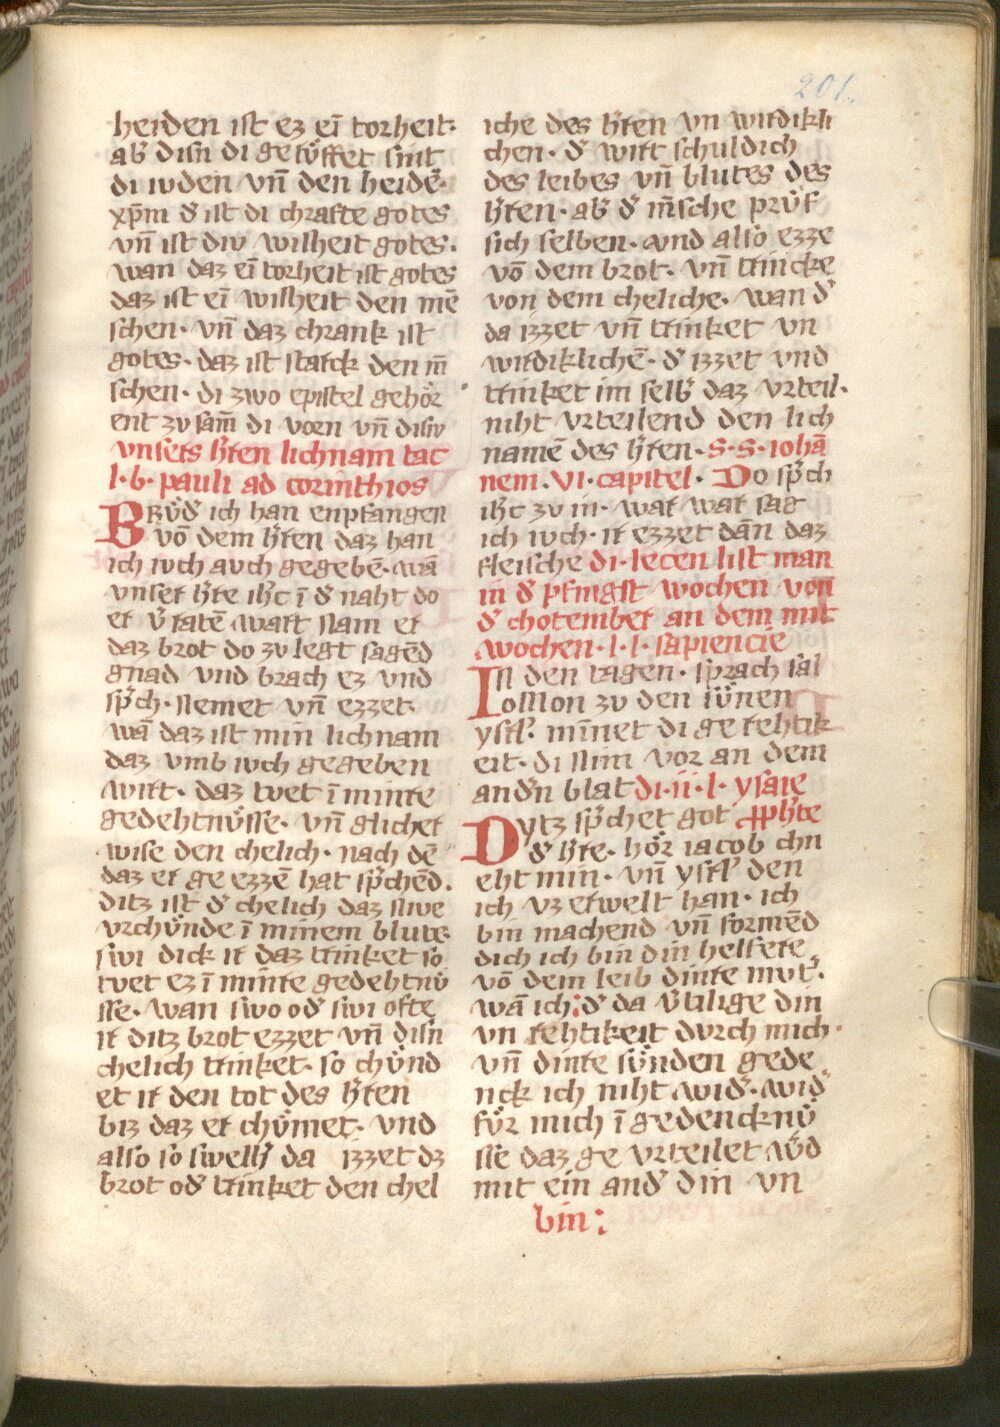 201.
heiden ist ez eī torheit·
ab̛ disn di getuͤffet sint
di iuden vn̄ den heidē·
xp̄m d̛ ist di chrafte gotes
vn̄ ist diu wisheit gotes·
wan daz eī torheit ist gotes
daz ist eī wisheit den mē
schen· vn̄ daz chrank ist
gotes· daz ist starck den m̄
schen· di zwo epistel gehoͤr
ent zv sam̄ di vorn vn̄ disiv
vnsers h̛ren lichnam tac
l·b· pauli ad corinthios
Bruͤd̛ ich han enpfangen
vō dem h̛ren daz han
ich iuch auch gegebē· wā
vnser h̛re ih̄c ī d̛ naht do
er v̛ratē wart nam er
daz brot do zv legt sagēd
gnad vnd brach ez vnd
sp̛ch· nemet vn̄ ezzet·
wā daz ist min lichnam
daz vmb iuch gegeben
wirt· daz tuet ī minre
gedehtnuͤsse· vn̄ glicher
wise den chelich· nach dē
daz er ge ezzē hat sp̛chēd·
ditz ist d̛ chelich daz niwe
vrchuͤnde ī minem blute·
swi dick ir daz trinket so
tuet ez ī minre gedehtnuͤ
sse· wan swo od̛ swi ofte
ir ditz brot ezzet vn̄ disn
chelich trinket· so chuͤnd
et ir den tot des h̛ren
biz daz er chuͤmet· vnd
also so swelh̛ da izzet dz
brot od̛ trinket den chel
iche des h̛ren vn wirdikli
chen· d̛ wirt schuldich
des leibes vn̄ blutes des
h̛ren· ab̛ d̛ m̄sche pruͤf
sich selben· vnd also ezze
vō dem brot· vn̄ trincke
von dem cheliche· wan d̛
da izzet vn̄ trinket vn
wirdiklichē· d̛ izzet vnd
trinket im selb̛ daz vrteil·
niht vrteilend den lich
namē des h̛ren· S·S·iohā
nem·VI·capitel· Do sp̛ch
ih̄c zv in· war war sag
ich iuch· ir ezzet dān daz
fleische di·lecen list man
in d̛ pfingst wochen von
d̛ chotember an dem mit
wochen·l·l·sapiencie
In den tagen· sprach sal
lomon zv den suͤnen
ysrl̛· minnet di gerehtik
eit· di nim vor an dem
and̛n blat di·ii·l·ysaie
Dytz sp̛chet got p̄ph̛te
d̛ h̛re· hoͤr iacob chn
eht min· vn̄ ysrl̛ den
ich vz erwelt han· ich
bin machend vn̄ formēd
dich ich bin din helfere
vō dem leib dinre mut̛·
wā ich: d̛ da v̛tilige din
vn rehtikeit durch mich·
vn̄ dinre suͤnden gede
nck ich niht wid̛· wid̛
fuͤr mich ī gedencknuͤ
sse daz ge vrteilet w̛d
mit ein and̛ din vn
bin: